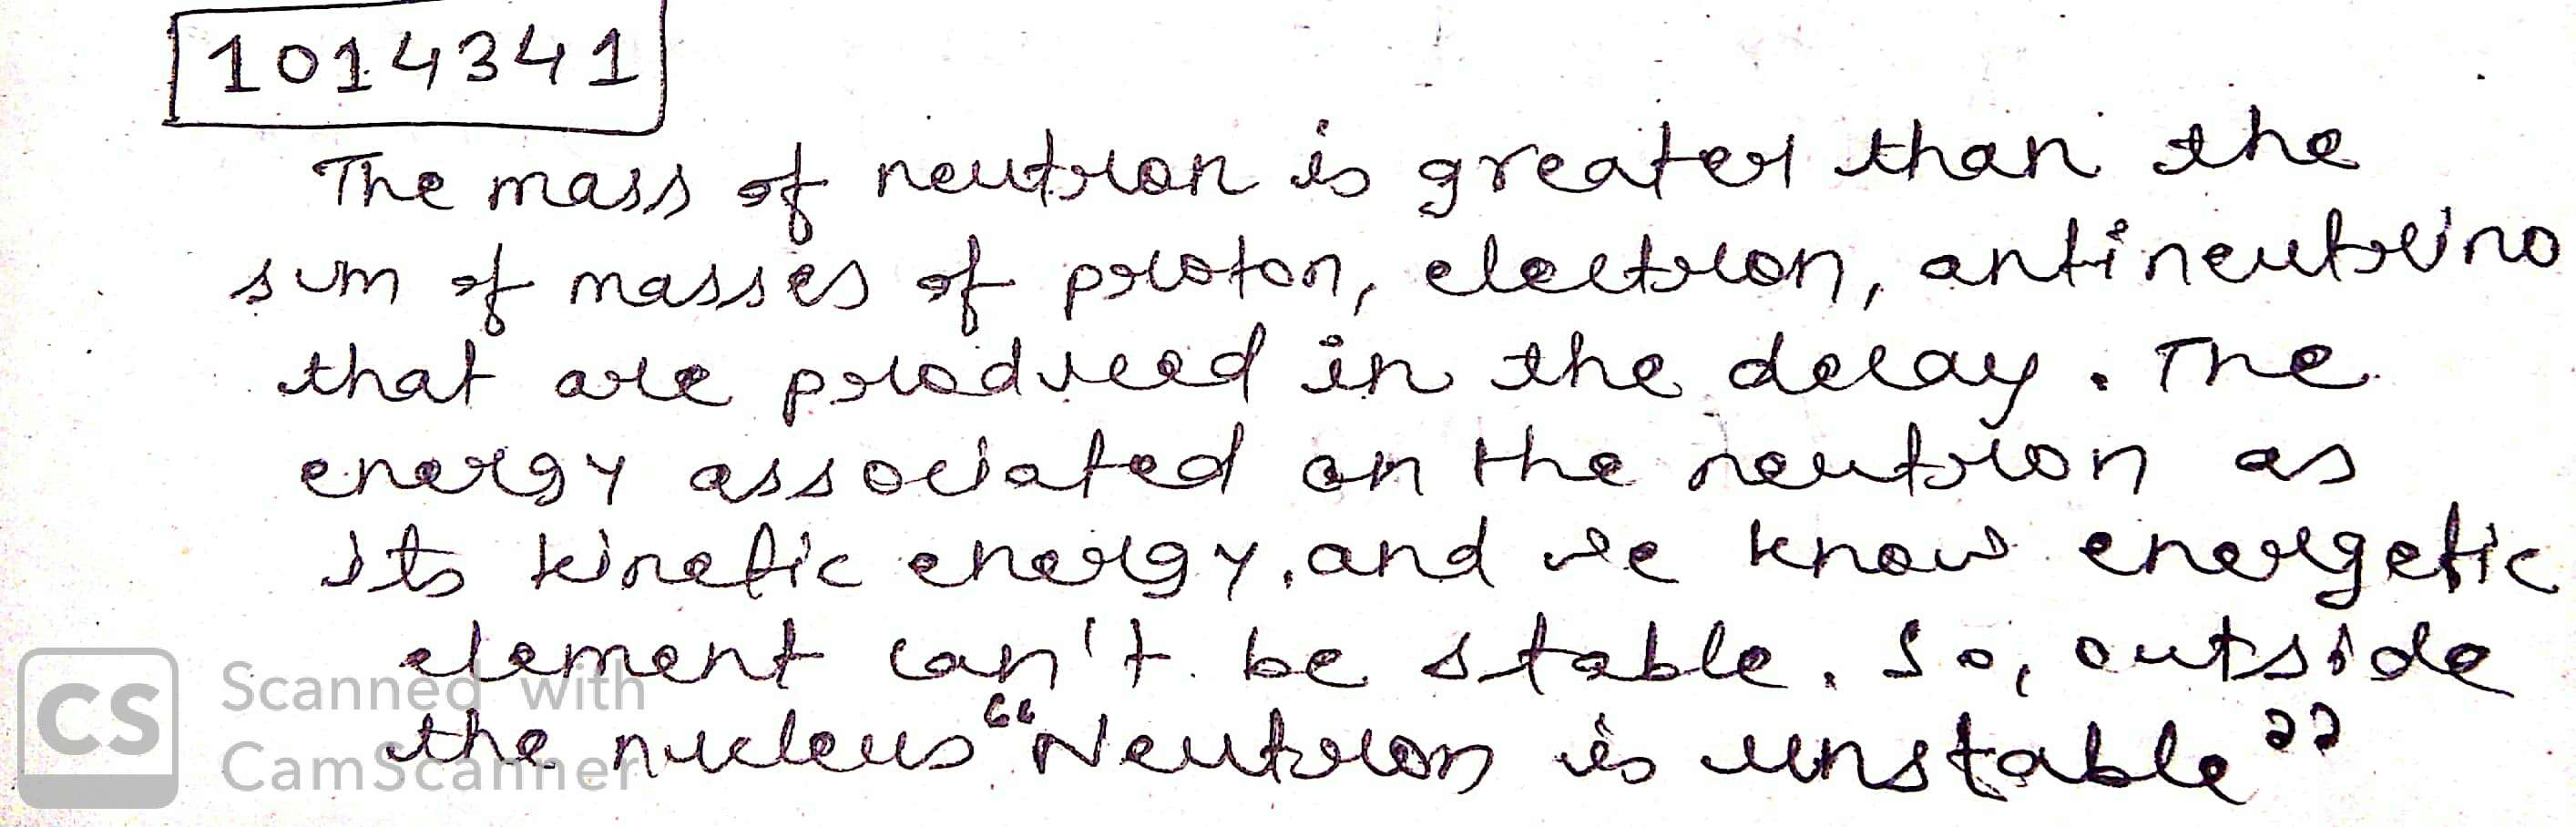 1014341
The mass of neutron is greater than the
sum of masses of proton, electron, antineutrino
that are produced in the decay. The
energy associated on the neutron as
its kinetic energy, and we know energetic
element can't be stable. So, outside
the nucleus "Neutron is unstable"
CS Scanned with
CamScanner